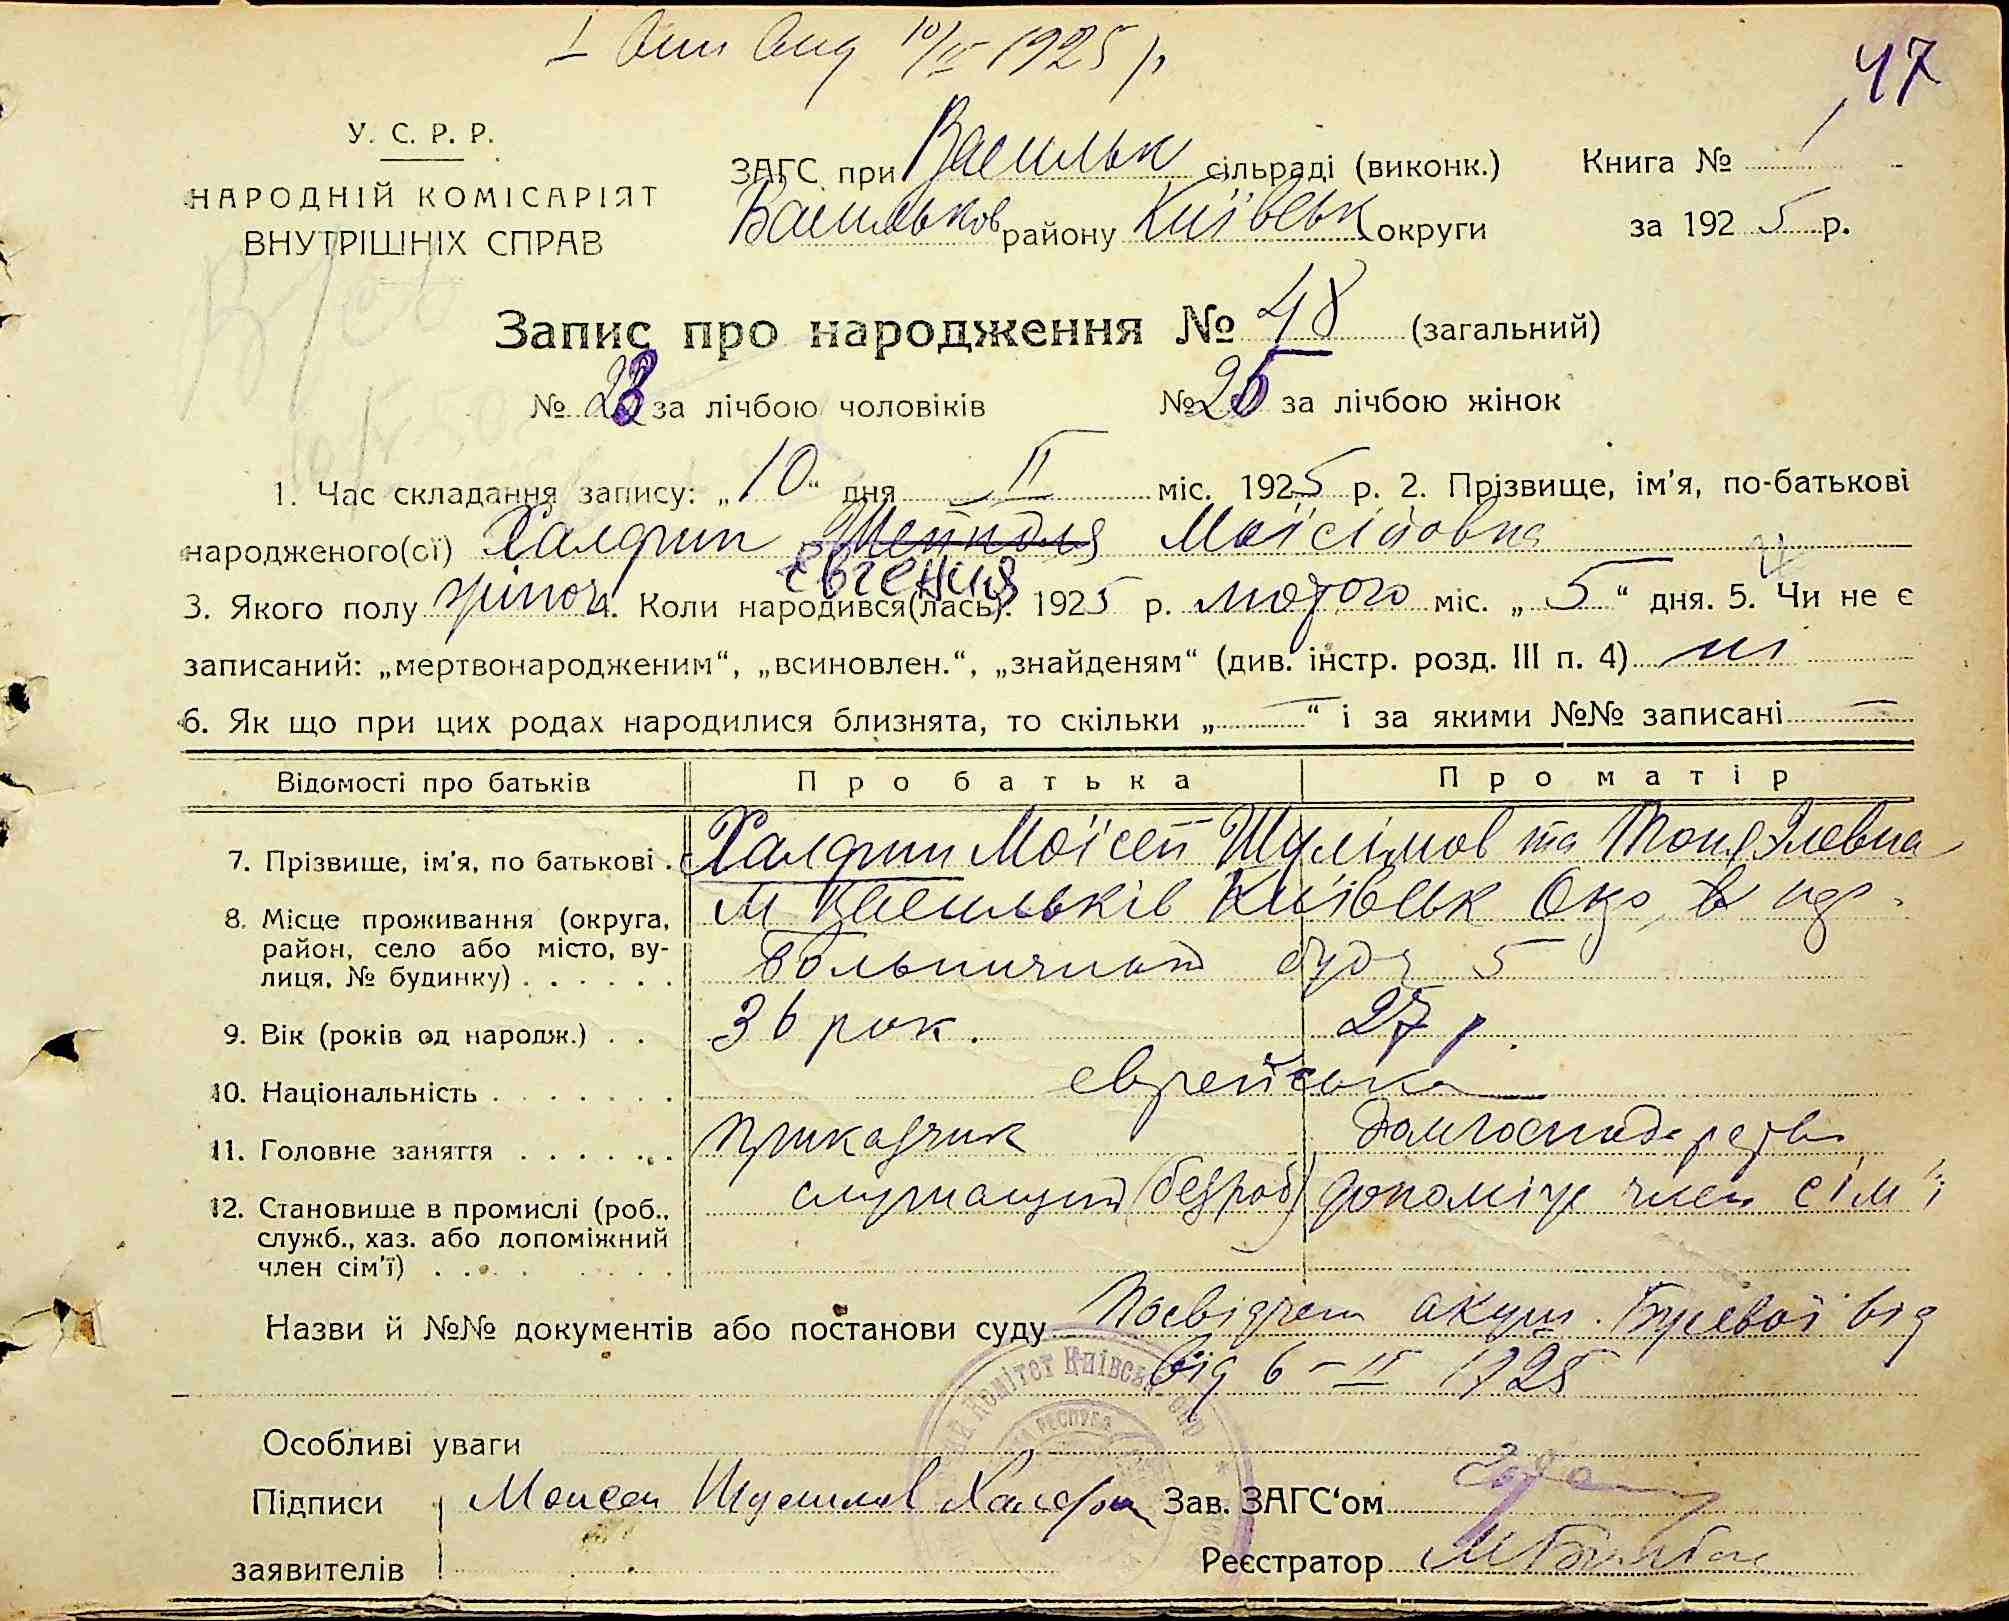 10/II 1925 р.
47
У. С. Р. Р.
НАРОДНІЙ КОМІСАРІЯТ
ВНУТРІШНІХ СПРАВ
ЗАГС при Васильк сільраді (виконк.) Книга № 1
Васильков району Київськ округи за 1925 р.
Запис про народження № 48 (загальний)
№ 23 за лічбою чоловіків № 25 за лічбою жінок
1. Час складання запису: „10“ дня II міс. 1925 р. 2. Прізвище, ім'я, по-батькові
народженого(ої) Халфин Шейндля Моісіївна
Євгенія
3. Якого полу жіноч 4. Коли народився(лась): 1925 р. лютого міс. „5“ дня. 5. Чи не є
записаний: „мертвонародженим“, „всиновлен.“, „знайденям“ (див. інстр. розд. III п. 4) ні
6. Як що при цих родах народилися близнята, то скільки „—“ і за якими №№ записані —
Відомості про батьків Про батька Про матір
7. Прізвище, ім'я, по батькові . Халфин Моїсей Шулімов та
8. Місце проживання (округа, м Васильків Київськ Окр
район, село або місто, ву-
лиця, № будинку) . . . . . . Больничная буд 5
9. Вік (років од народж.) . . 36 рок. 27 р.
10. Національність . . . . . . . єврейська
11. Головне заняття . . . . . . . приказчик домгосподарство
12. Становище в промислі (роб., служащий (безроб) допоміж член сім'ї
служб., хаз. або допоміжний
член сім'ї) . . . . . . . . .
Назви й №№ документів або постанови суду Посвідчен акуш. від
від 6-II 1925
Особливі уваги
Підписи Моисей Шулимов Халфин Зав. ЗАГС‘ом
заявителів Реєстратор